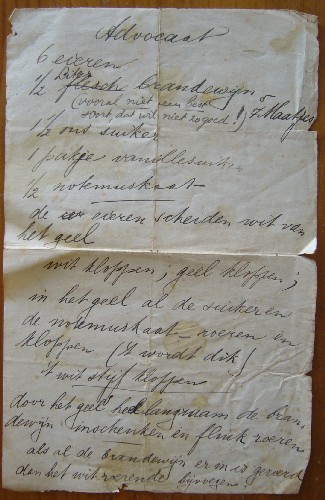 Advocaat
6 eieren
1/2 Liter flesch brandewijn
(vooral niet een best
soort, dat wil niet zo goed!) 7 Maatjes
1/2 ons suiker
1 pakje vanillesuiker
1/2 notemuskaat
de eieren scheiden wit van
het geel
wit kloppen; geel kloppen;
in het geel al de suikeren
de notemuskaat - roeren en
kloppen ('t wordt dik)
't wit stijf kloppen
door het geel heel langzaam de bran-
dewijn inschenken en flink roeren
als al de brandewijn er in is geroerd
dan het wit roerende bijvoegen